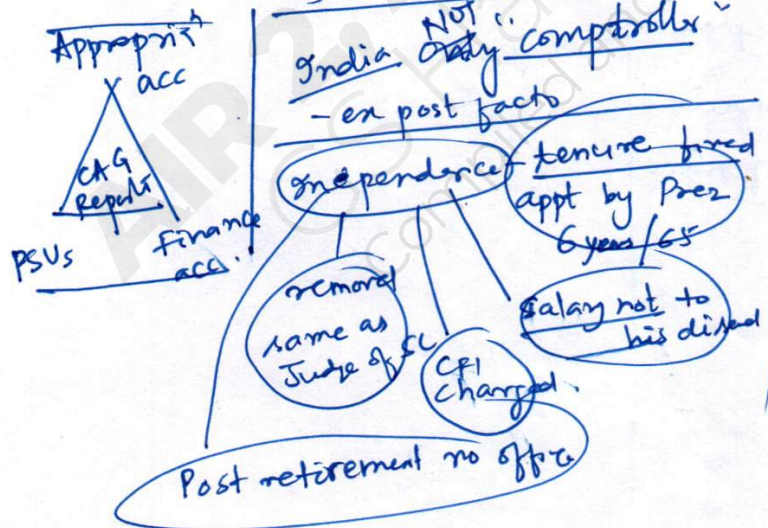 Appropriatn
acc
CAG
Reports
PSUs
Finance
acc.
India NOT only "comptroller"
- ex post facto
Independence
- tenure fixed
appt by Prez
6 years / 65
removal
same as
Judge of SC
CFI
charged.
salary not to
his disad
Post retirement no office
AIR 2
Compiled